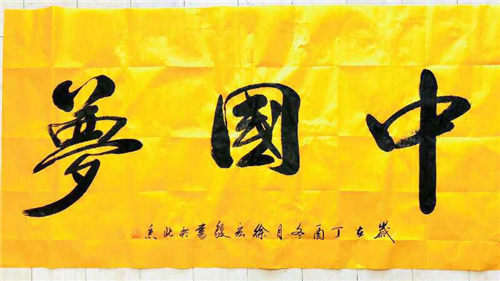 中國夢
歲在丁酉冬月徐云書於北京